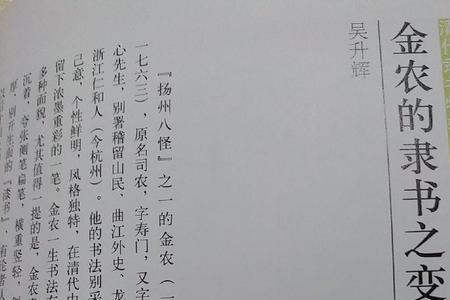 金农的隶书之变
吴升辉
『扬州八怪』之一的金农（一
一七六三），原名司农，字寿门，又字
心先生，别署稽留山民、曲江外史、龙
浙江仁和人（今杭州）。他的书法别采
己意，个性鲜明，风格独特，在清代中
留下浓墨重彩的一笔。金农一生书法有
多种面貌，尤其值得一提的是，金农
沉着，夸张侧笔扁笔，横重竖轻，
厚，别开生面的『漆书』，有论者人